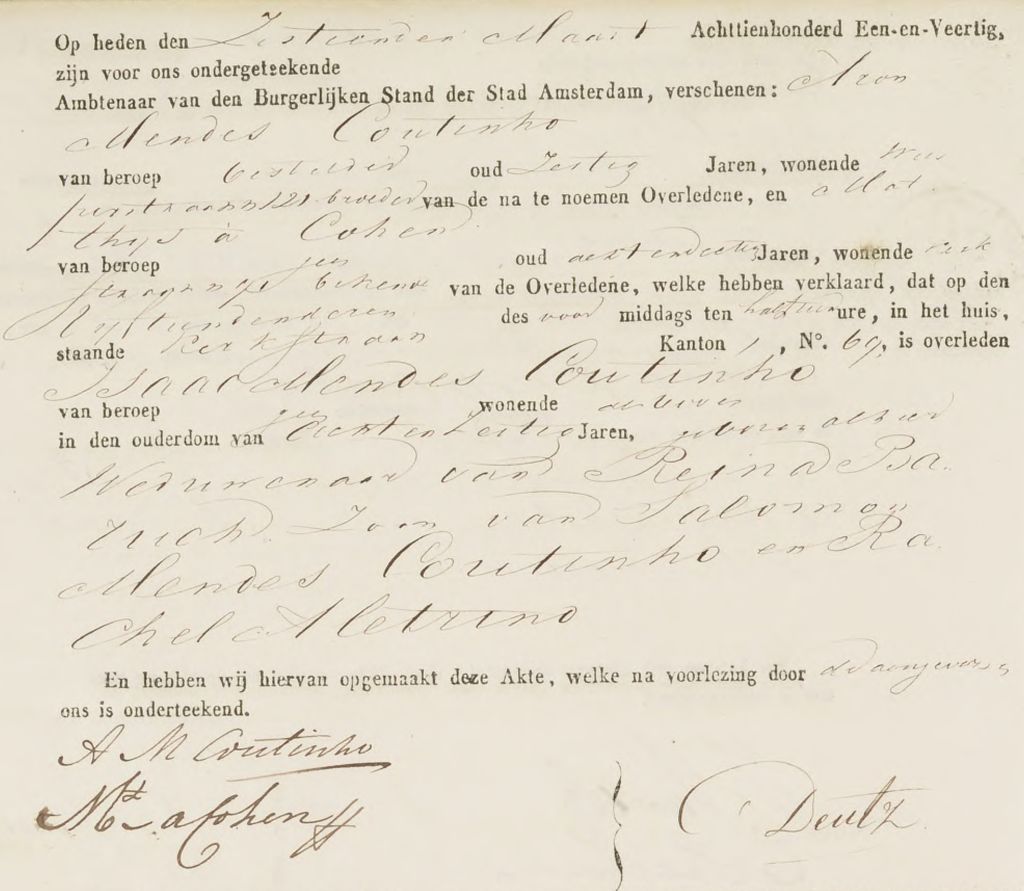 Op heden den Zestienden Maart Achttienhonderd Een-en-Veertig,
zijn voor ons ondergeteekende
Ambtenaar van den Burgerlijken Stand der Stad Amsterdam, verschenen: Aron
Mendes Coutinho
van beroep besteller oud Zestig Jaren, wonende
121 broeder van de na te noemen Overledene, en Mat
thijs à Cohen
van beroep geen oud acht en dertig Jaren, wonende Kerk
bekende van de Overledene, welke hebben verklaard, dat op den
Vijftienden deren des voor middags ten half tien ure, in het huis,
staande Kerkstraat Kanton 1, N°. 69, is overleden
Isaac Mendes Coutinho
van beroep geen wonende als boven
in den ouderdom van acht en Zestig Jaren, geboren alhier
Weduwenaar van Reina Ba
ruch. Zoon van Salomon
Mendes Coutinho en Ra
chel Aletrino
En hebben wij hiervan opgemaakt deze Akte, welke na voorlezing door de aangevers en
ons is onderteekend.
A M Coutinho
Mts a Cohen
Deutz